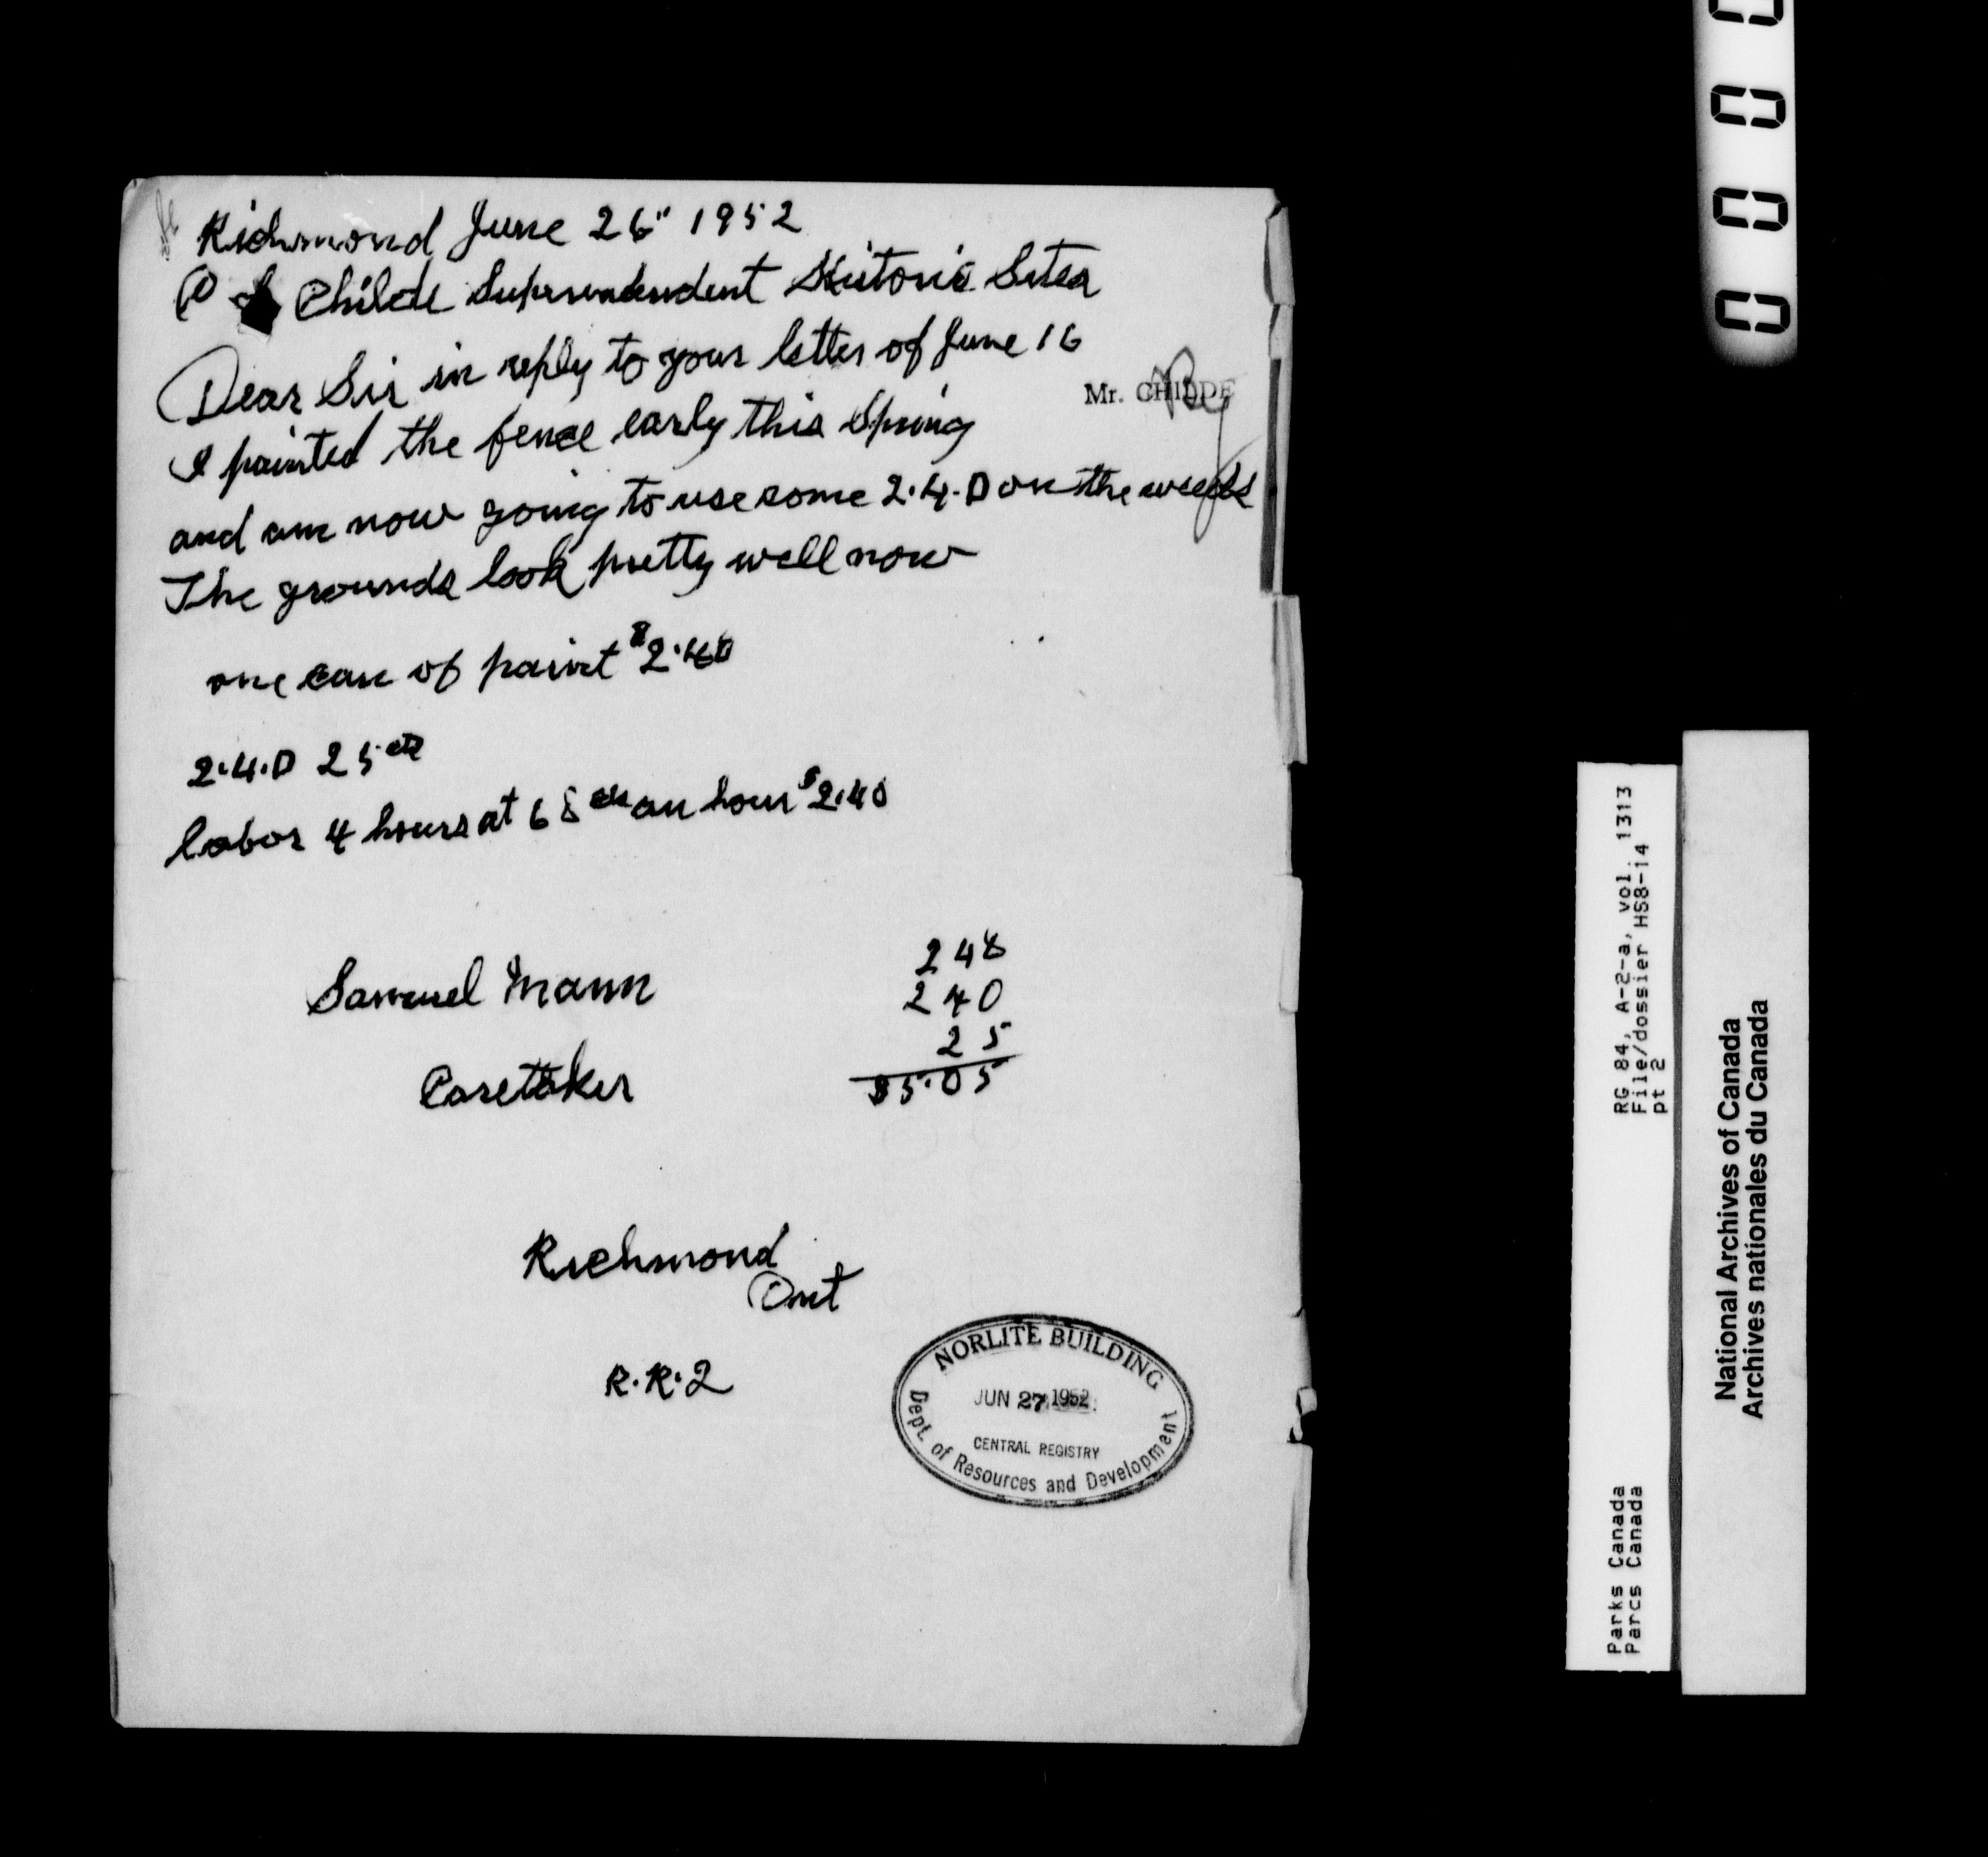 Richmond June 26" 1952
Childe Superendendent Historic Sites
Dear Sir in reply to your letter of June 16
Mr. CHILDE
I painted the fence early this Spring
and am now going to use some 2.4.D on the weeds
The grounds look pretty well now
one can of paint $2.40
2.4.D 25 cts
labor 4 hours at 6 cts an hour $2.40
Samuel Mann
Caretaker
248
240
25
$5.05
Richmond
Ont
R.R.2
NORLITE BUILDING
JUN 27 1952
CENTRAL REGISTRY
Dept. of Resources and Development
0 0 0 0
RG 84, A-2-a, vol. 1313
File/dossier HS8-14
pt 2
Parks Canada
Parcs Canada
National Archives of Canada
Archives nationales du Canada